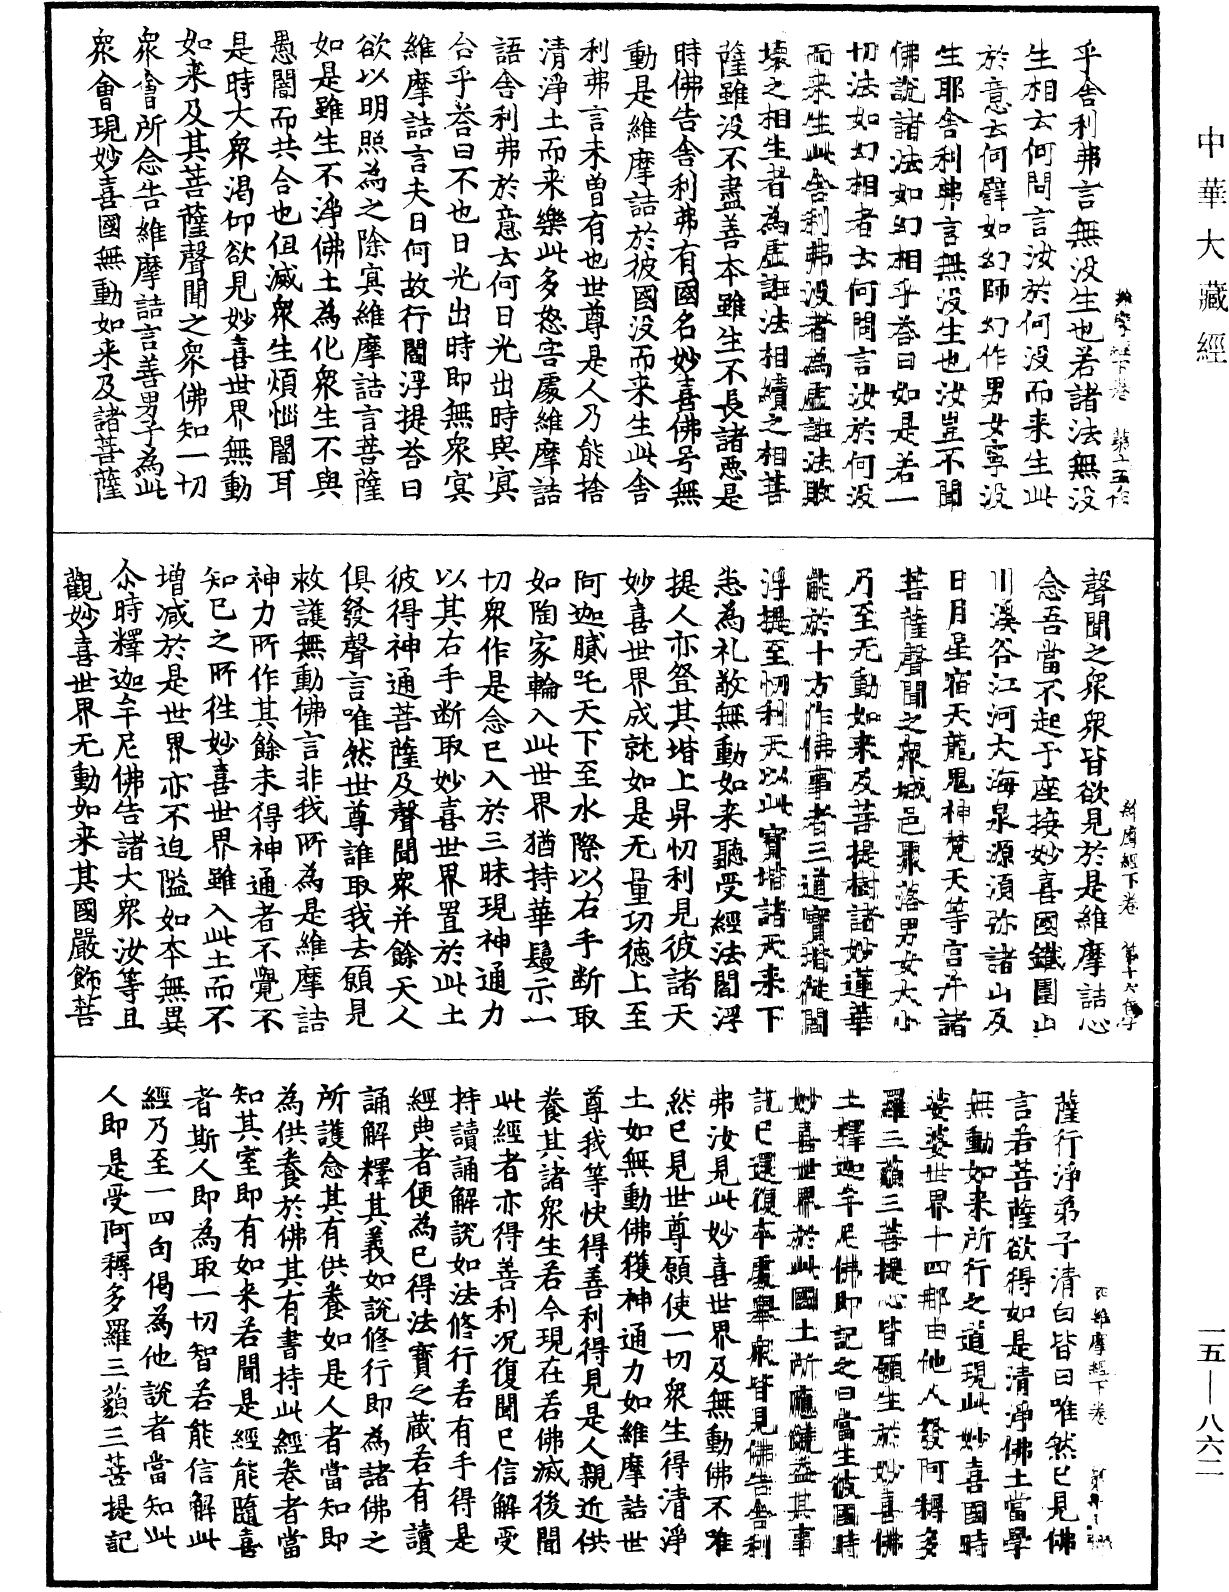 中華大藏經
乎舍利弗言無没生也若諸法無没
生相云何問言汝於何没而来生此
於意云何譬如幻師幻作男女寧没
生耶舍利弗言無没生也汝豈不聞
佛說諸法如幻相乎荅曰如是若一
切法如幻相者云何問言汝於何没
而来生此舍利弗没者為虛誑法敗
壞之相生者為虛誑法相續之相菩
薩雖没不盡善本雖生不長諸惡是
時佛告舍利弗有國名妙喜佛号無
動是維摩詰於彼國没而来生此舍
利弗言未曾有也世尊是人乃能捨
清淨土而来樂此多怒害處維摩詰
語舍利弗於意云何日光出時與冥
合乎荅曰不也日光出時即無衆冥
維摩詰言夫日何故行閻浮提荅曰
欲以明照為之除冥維摩詰言菩薩
如是雖生不淨佛土為化衆生不與
愚闇而共合也但滅衆生煩惱闇耳
是時大衆渴仰欲見妙喜世界無動
如来及其菩薩聲聞之衆佛知一切
衆會所念告維摩詰言善男子為此
衆會現妙喜國無動如来及諸菩薩
維摩經下卷
聲聞之衆衆皆欲見於是維摩詰心
念吾當不起于座接妙喜國鐵圍山
川溪谷江河大海泉源湏弥諸山及
日月星宿天龍鬼神梵天等宫并諸
菩薩聲聞之衆城邑聚落男女大小
乃至无動如来及菩提樹諸妙蓮華
能於十方作佛事者三道寶堦從閻
浮提至忉利天以此寶堦諸天来下
悉為礼敬無動如来聽受經法閻浮
提人亦登其堦上昇忉利見彼諸天
妙喜世界成就如是无量功德上至
阿迦膩吒天下至水際以右手断取
如陶家輪入此世界猶持華鬘示一
切衆作是念已入於三昧現神通力
以其右手断取妙喜世界置於此土
彼得神通菩薩及聲聞衆并餘天人
俱發聲言唯然世尊誰取我去願見
救護無動佛言非我所為是維摩詰
神力所作其餘未得神通者不覺不
知已之所徃妙喜世界雖入此土而不
增減於是世界亦不迫隘如本無異
尒時釋迦牟尼佛告諸大衆汝等且
觀妙喜世界无動如来其國嚴飾菩
維摩經下卷
薩行淨弟子清白皆曰唯然已見佛
言若菩薩欲得如是清淨佛土當學
無動如来所行之道現此妙喜國時
娑婆世界十四那由他人發阿耨多
羅三藐三菩提心皆願生於妙喜佛
土釋迦牟尼佛即記之曰當生彼國時
妙喜世界於此國土所應饒益其事
訖已還復本處舉衆皆見佛告舍利
弗汝見此妙喜世界及無動佛不唯
然已見世尊願使一切衆生得清淨
土如無動佛獲神通力如維摩詰世
尊我等快得善利得見是人親近供
養其諸衆生若今現在若佛滅後聞
此經者亦得善利况復聞已信解受
持讀誦解說如法修行若有手得是
經典者便為已得法寶之藏若有讀
誦解釋其義如說修行即為諸佛之
所護念其有供養如是人者當知即
為供養於佛其有書持此經卷者當
知其室即有如来若聞是經能隨喜
者斯人即為取一切智若能信解此
經乃至一四句偈為他說者當知此
人即是受阿耨多羅三藐三菩提記
維摩經下卷
一五—八六二